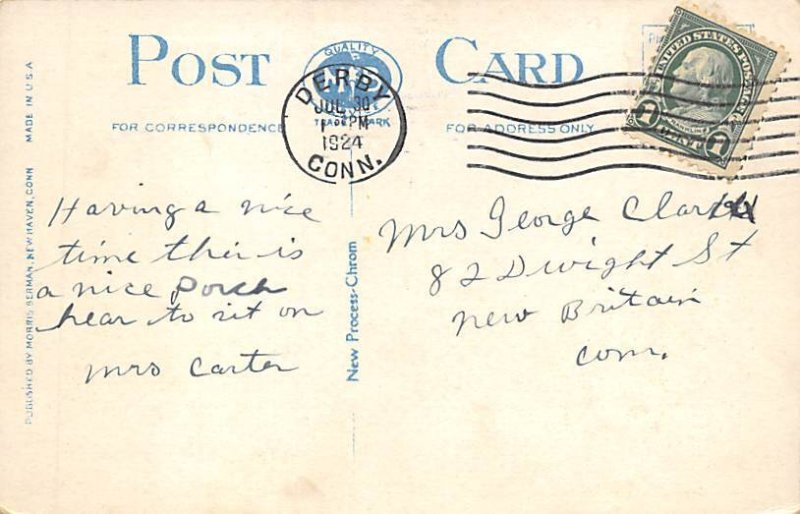 POST CARD
QUALITY
TRADE MARK
FOR CORRESPONDENCE
FOR ADDRESS ONLY
DERBY
JUL 30
1 PM
1924
CONN.
UNITED STATES POSTAGE
FRANKLIN
1 CENT 1
Having a nice
time ther is
a nice porch
hear to sit on
Mrs Carter
Mrs George Clark
82 Dwight St
New Britain
Conn.
New Process-Chrom
PUBLISHED BY MORRIS BERMAN, NEW HAVEN, CONN
MADE IN U.S.A